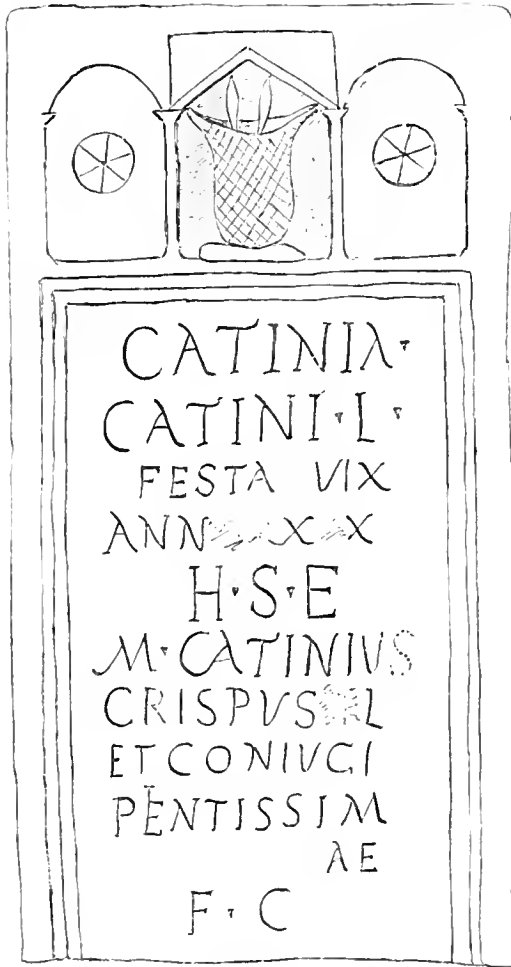 CATINIA·
CATINI·L·
FESTA VIX
ANN X X
H·S·E
M·CATINIVS
CRISPVS L
ET CONIVGI
PENTISSIM
AE
F·C